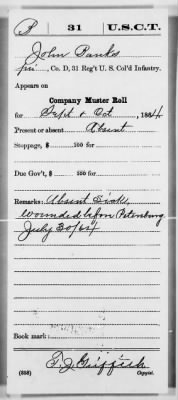 B 31 U.S.C.T.
John Banks
Pvt, Co. D, 31 Reg't U. S. Col'd Infantry.
Appears on
Company Muster Roll
for Sept & Oct, 1864
Present or absent Absent
Stoppage, $ 100 for
Due Gov't, $ 100 for
Remarks: Absent Sick,
Wounded before Petersburg
July 30/64
Book mark:
(358) Copyist.